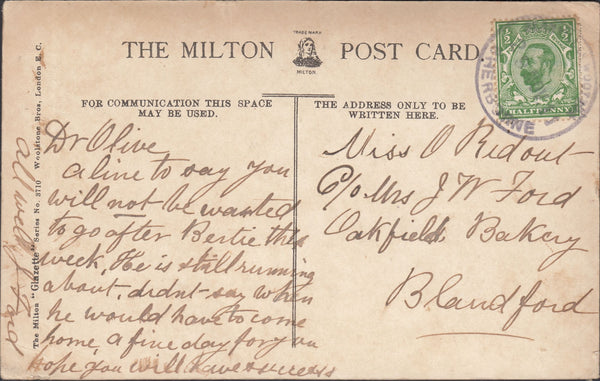 THE MILTON POST CARD
TRADE MARK
MILTON.
FOR COMMUNICATION THIS SPACE
MAY BE USED.
THE ADDRESS ONLY TO BE
WRITTEN HERE.
The Milton "Glazette" Series No. 3710 Woolstone Bros., London E.C.
Dr Olive
a line to say you
will not be wanted
to go after Bertie this
week, He is still running
about, didnt say when
he would have to come
home a fine day for you
hope you will have success
all well
Miss O Ridout
C/o Mrs J W Ford
Oakfield Bakery
Blandford
½ ½
HALFPENNY